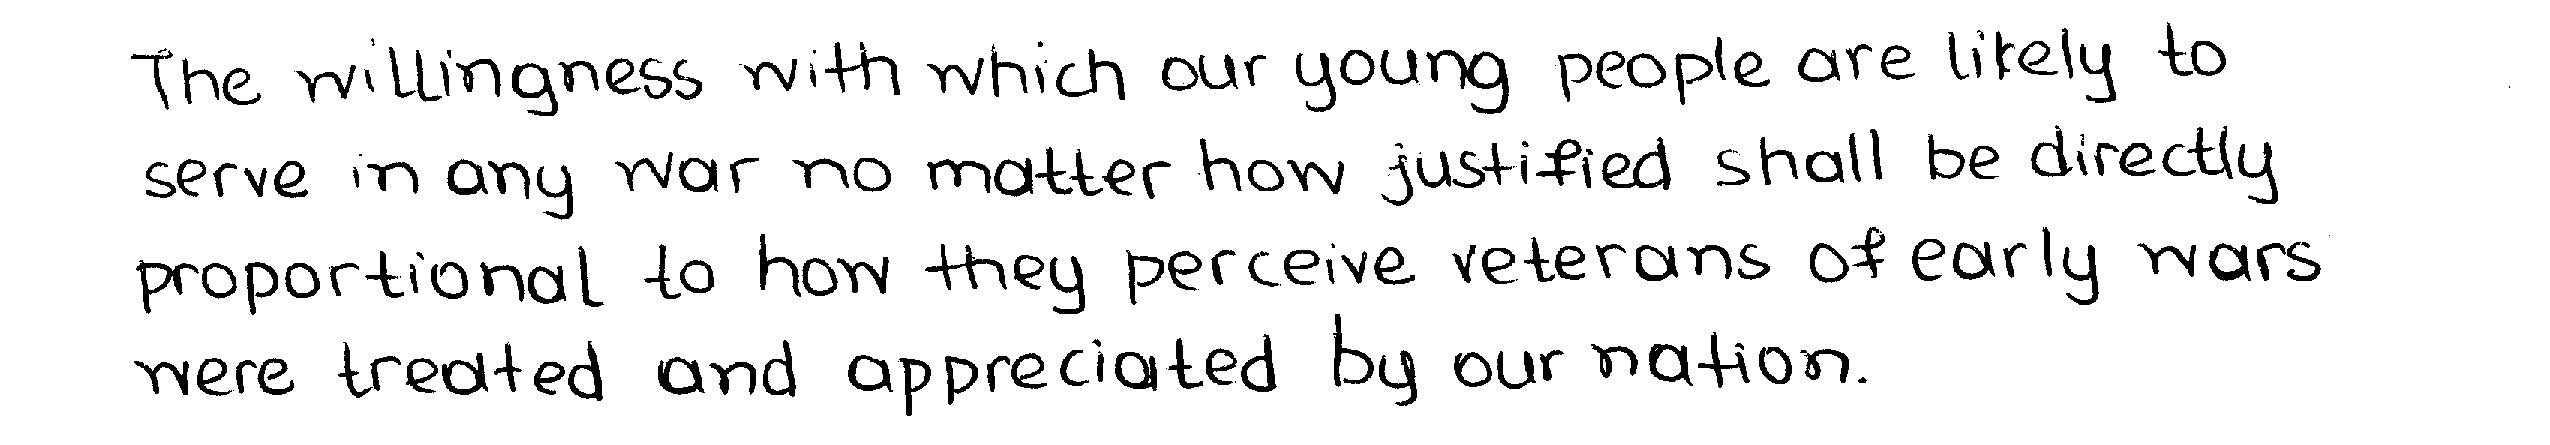 The willingness with which our young people are likely to
serve in any war no matter how justified shall be directly
proportional to how they perceive veterans of early wars
were treated and appreciated by our nation.